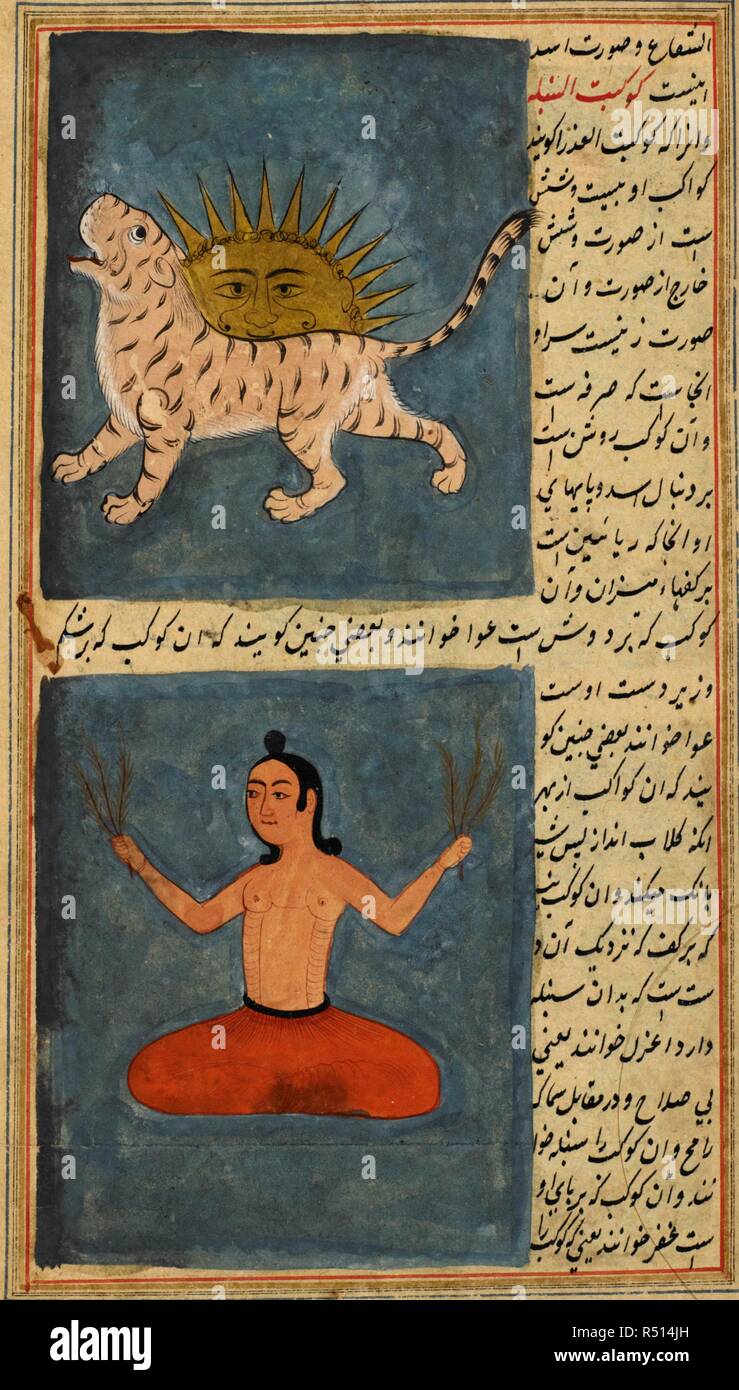 الشعاع و صورت اسد
اینست کوکبت السنبله
وانرا که کوکبت العذرا کویند
کواکب او بیست و شش
است از صورت و شش
خارج از صورت و آن
صورت زنیست سر او
انجاست که صرفه است
وآن کوکب روشن است
بر دنبال اسد و پایهای
او انجا که زبانین است
بر کفهاء میزان وآن
کوکب که بر دوش است عوا خوانند و بعضی چنین کویند که ان کوکب که بر شکم
و زیر دست اوست
عوا خوانند بعضی چنین کو
یند که ان کواکب از بهر
انکه کلاب انداز پس شیر
بانک میکند وان کوکب
که بر کف که نزدیک آن د
ست است که بدان سنبله
دارد اعزل خوانند یعنی
بی صلاح و در مقابل سماک
رامح وان کوکب را سنبله خوا
نند وان کوکب که بر پای او
است غفر خوانند یعنی که کوکب را
alamy
Image ID: R514JH
www.alamy.com